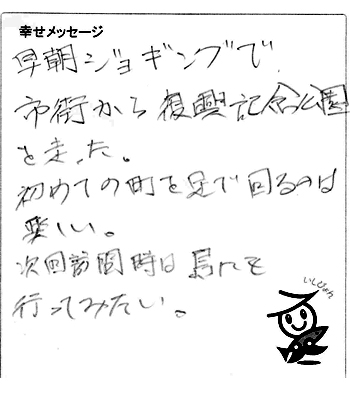 幸せメッセージ
早朝ジョギングで
市街から復興記念公園
を走った。
初めての町を足で回るのは
楽しい。
次回訪問時は島にも
行ってみたい。
いしぴょん